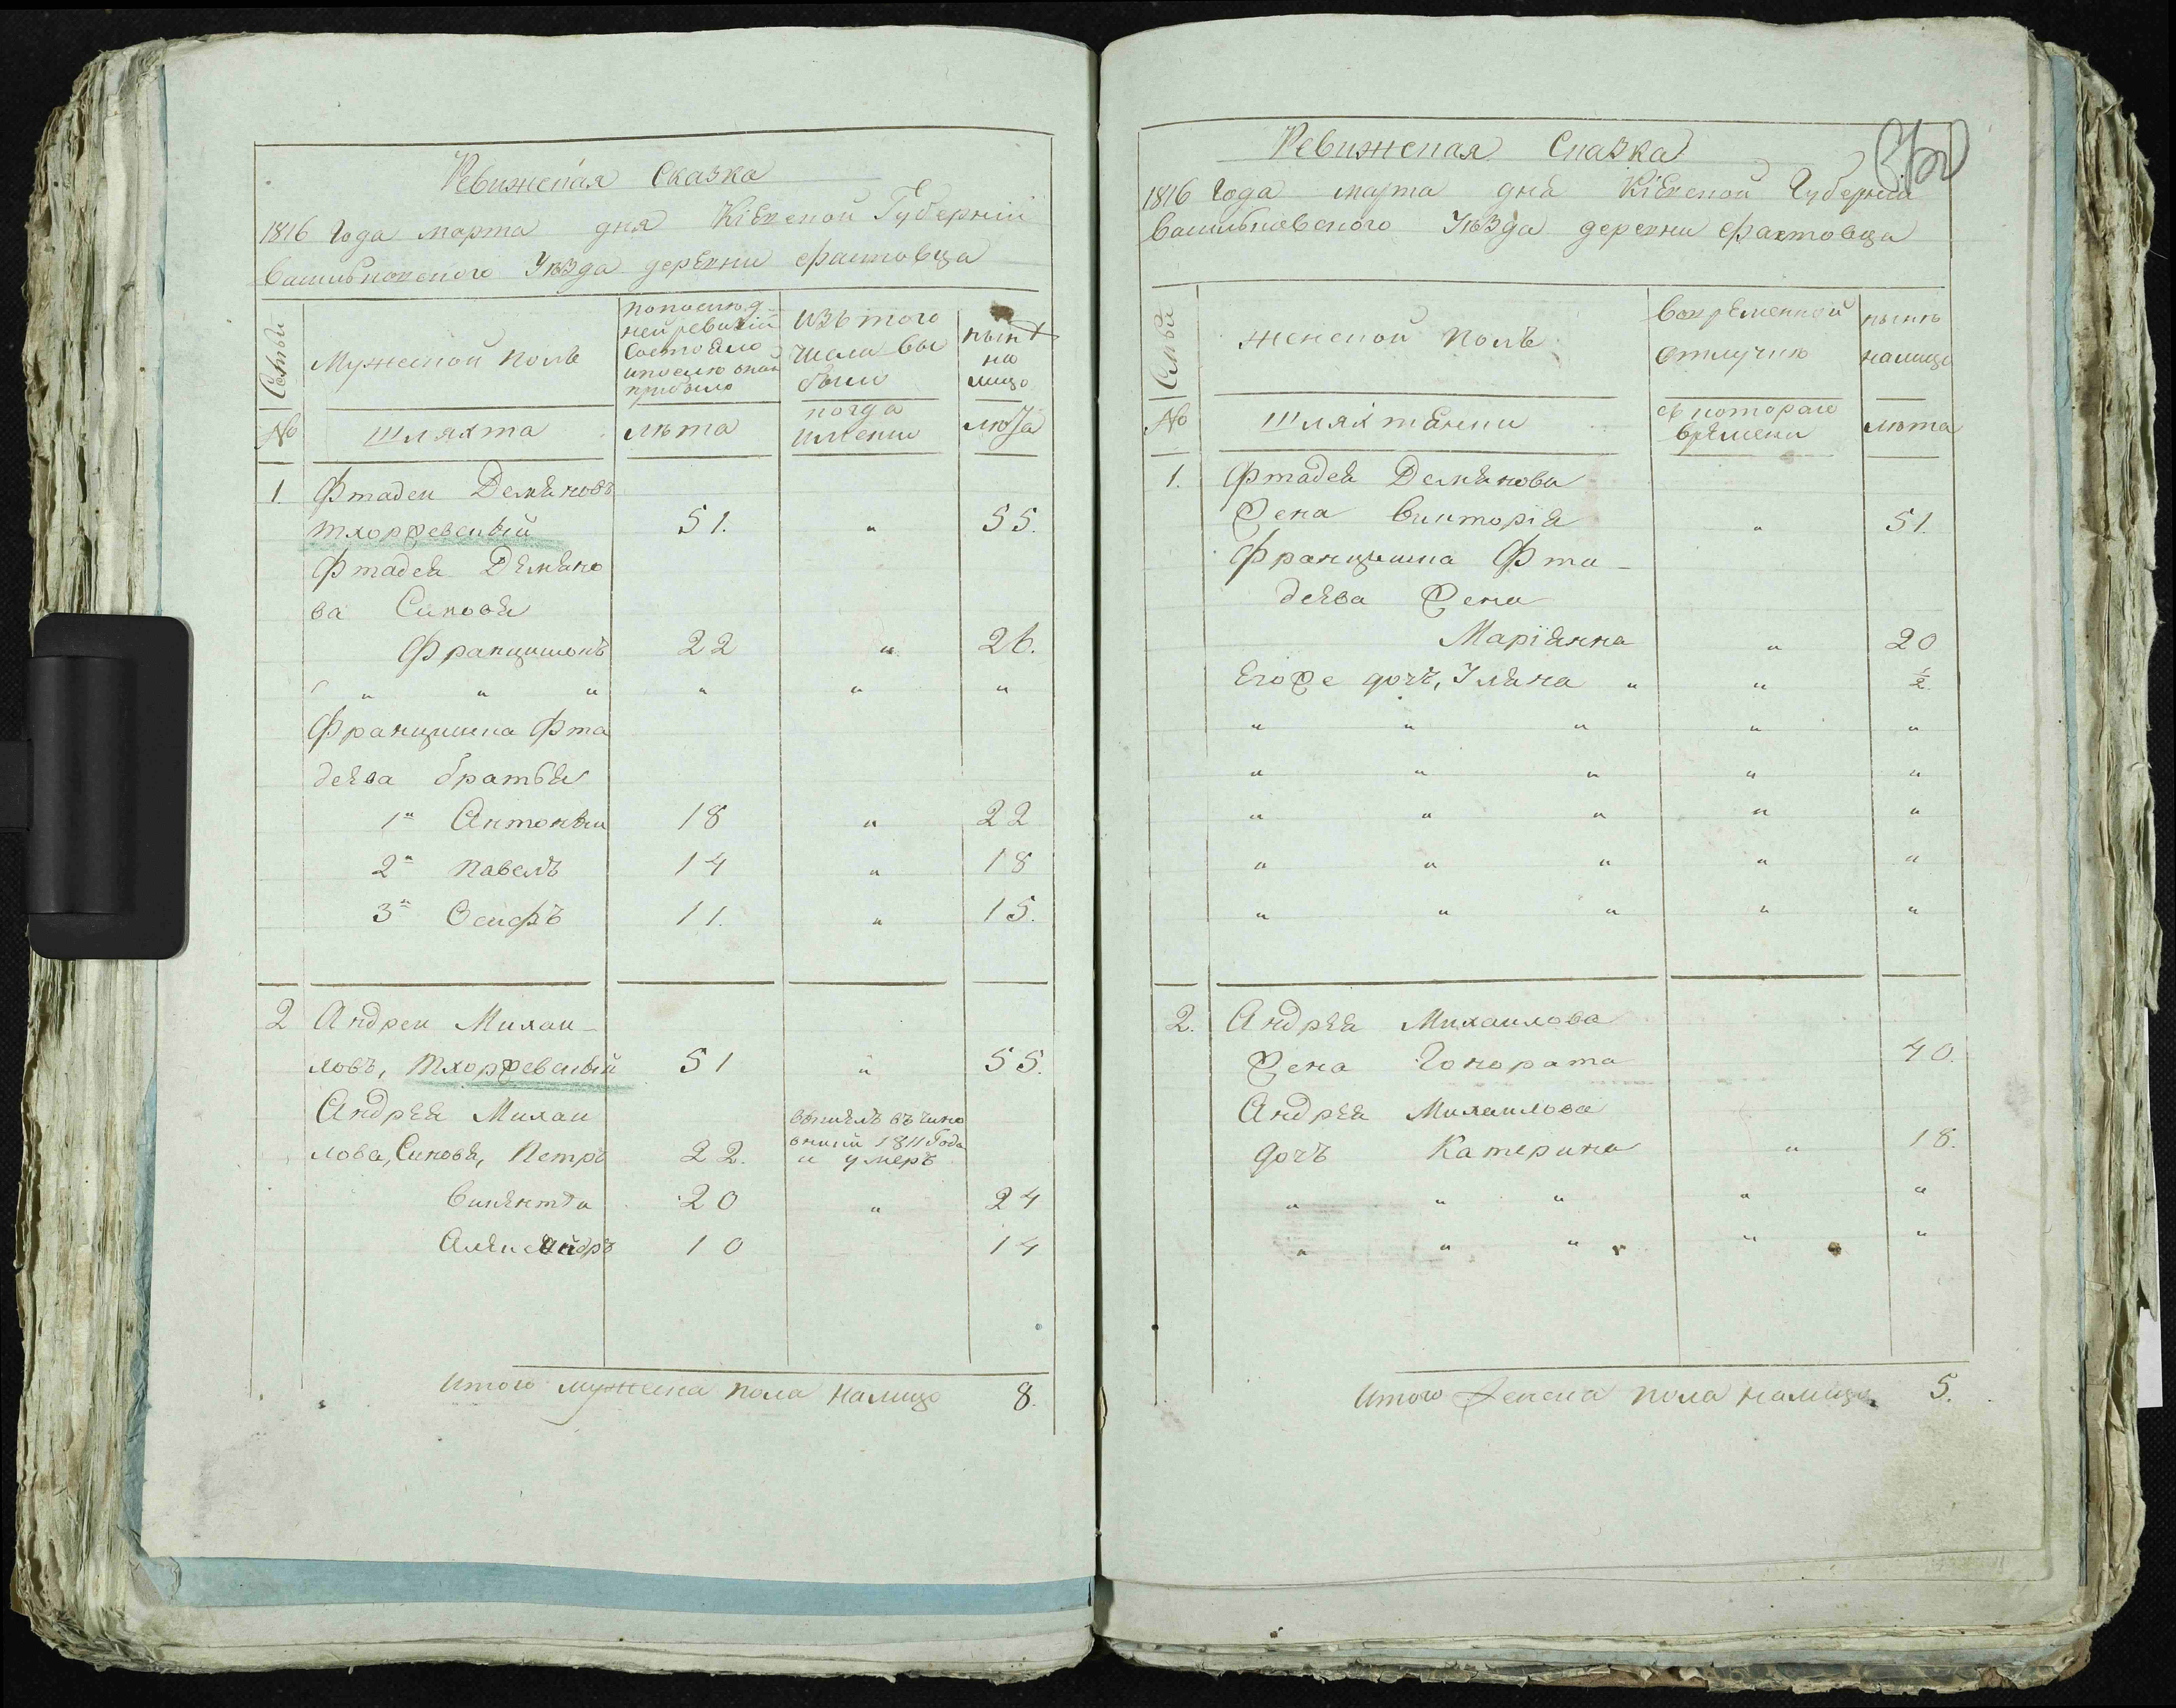 Ревижская Сказка
1816 Года марта дня Кіевской Губерніи
Васильковского Уѣзда деревни Фастовца
Семьи
Мужеской полъ
попослѣд
ней ревизіи
Состояло
ипослѣ онои
прибыло
изътого
числа вы
было
нынѣ
на
лицо
№
Шляхта
лѣта
когда
имѣнно
лѣта
1. Фтадеи Демяновъ
Тхоржевскій 51. " 55.
Фтадея Демяно
ва Синовя
Францишокъ 22 " 26.
" " " " " "
Францишка Фта
деева братья
1й Антоній 18 " 22
2й Павелъ 14 " 18
3й Осифъ 11. " 15.
2 Андреи Михаи-
ловъ, Тхоржевскій 51 " 55.
Андрея Михаи
лова, Синовя, Петръ 22.
вышелъ въ
1811 Года
и умеръ
Викентіи 20 " 24
Александръ 10 14
Итого мужеска пола налицо 8.
Ревижская Сказка
1816 Года марта дня Кіевской Губерніи
Васильковского Уѣзда деревни Фастовца
Семьи
женской полъ
вовременной
отлучкѣ
нынѣ
налицо
№
Шляхтянки
съ котораго
времени
лѣта
1. Фтадея Демянова
Жена Викторія " 51.
Францишка Фта-
деева Жена
Маріянна " 20
Егоже дочъ, Уляна " " ½.
" " " " "
" " " " "
" " " " "
" " " " "
" " " " "
2. Андрея Михаилова
Жена Гонората 40.
Андрея Михаилова
дочъ Катерина " 18.
" " " " "
" " " " "
Итого Женска пола налицо 5.